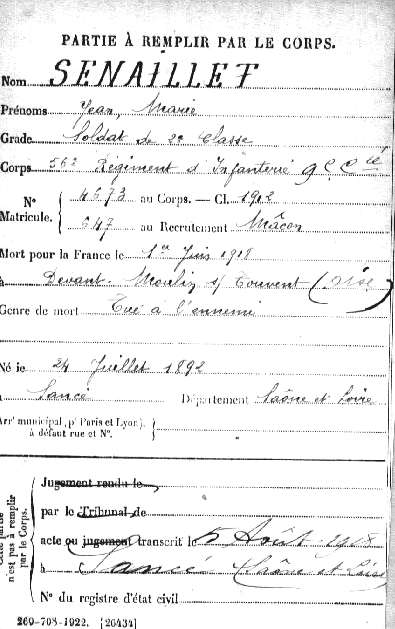 PARTIE À REMPLIR PAR LE CORPS.
Nom SENAILLET
Prénoms Jean, Marie
Grade Soldat de 2e Classe
Corps 56e Régiment d'Infanterie 9e Cie
N° Matricule. { 4673 au Corps. — Cl. 1912
647 au Recrutement Mâcon
Mort pour la France le 1er Juin 1918
à Devant Moulin s/ Touvent (Oise)
Genre de mort Tué à l'ennemi
Né le 24 Juillet 1892
à Sancé Département Saône et Loire
Arrt municipal (pr Paris et Lyon),
à défaut rue et N°.
Cette partie n'est pas à remplir par le Corps.
Jugement rendu le
par le Tribunal de
acte ou jugement transcrit le 5 Août 1918
à Sancé (Saône et Loire
N° du registre d'état civil
260-708-1922. [26434]